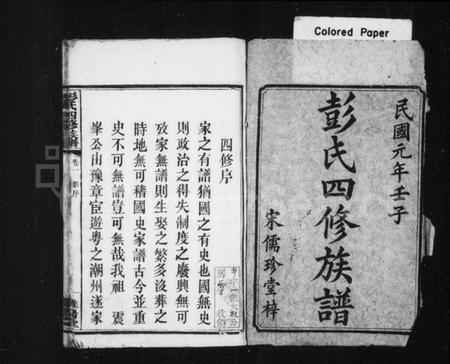 Colored Paper
民國元年壬子
彭氏四修族譜
宋儒珍堂梓
四修序
家之有譜猶國之有史也國無史
則政治之得失制度之廢興無可
攷家無譜則生娶之繁多沒葬之
時地無可稽國史家譜古今並重
史不可無譜豈可無哉我祖 震
峯公由豫章宦遊粵之潮州遂家
彭氏四修族譜 卷一 新序